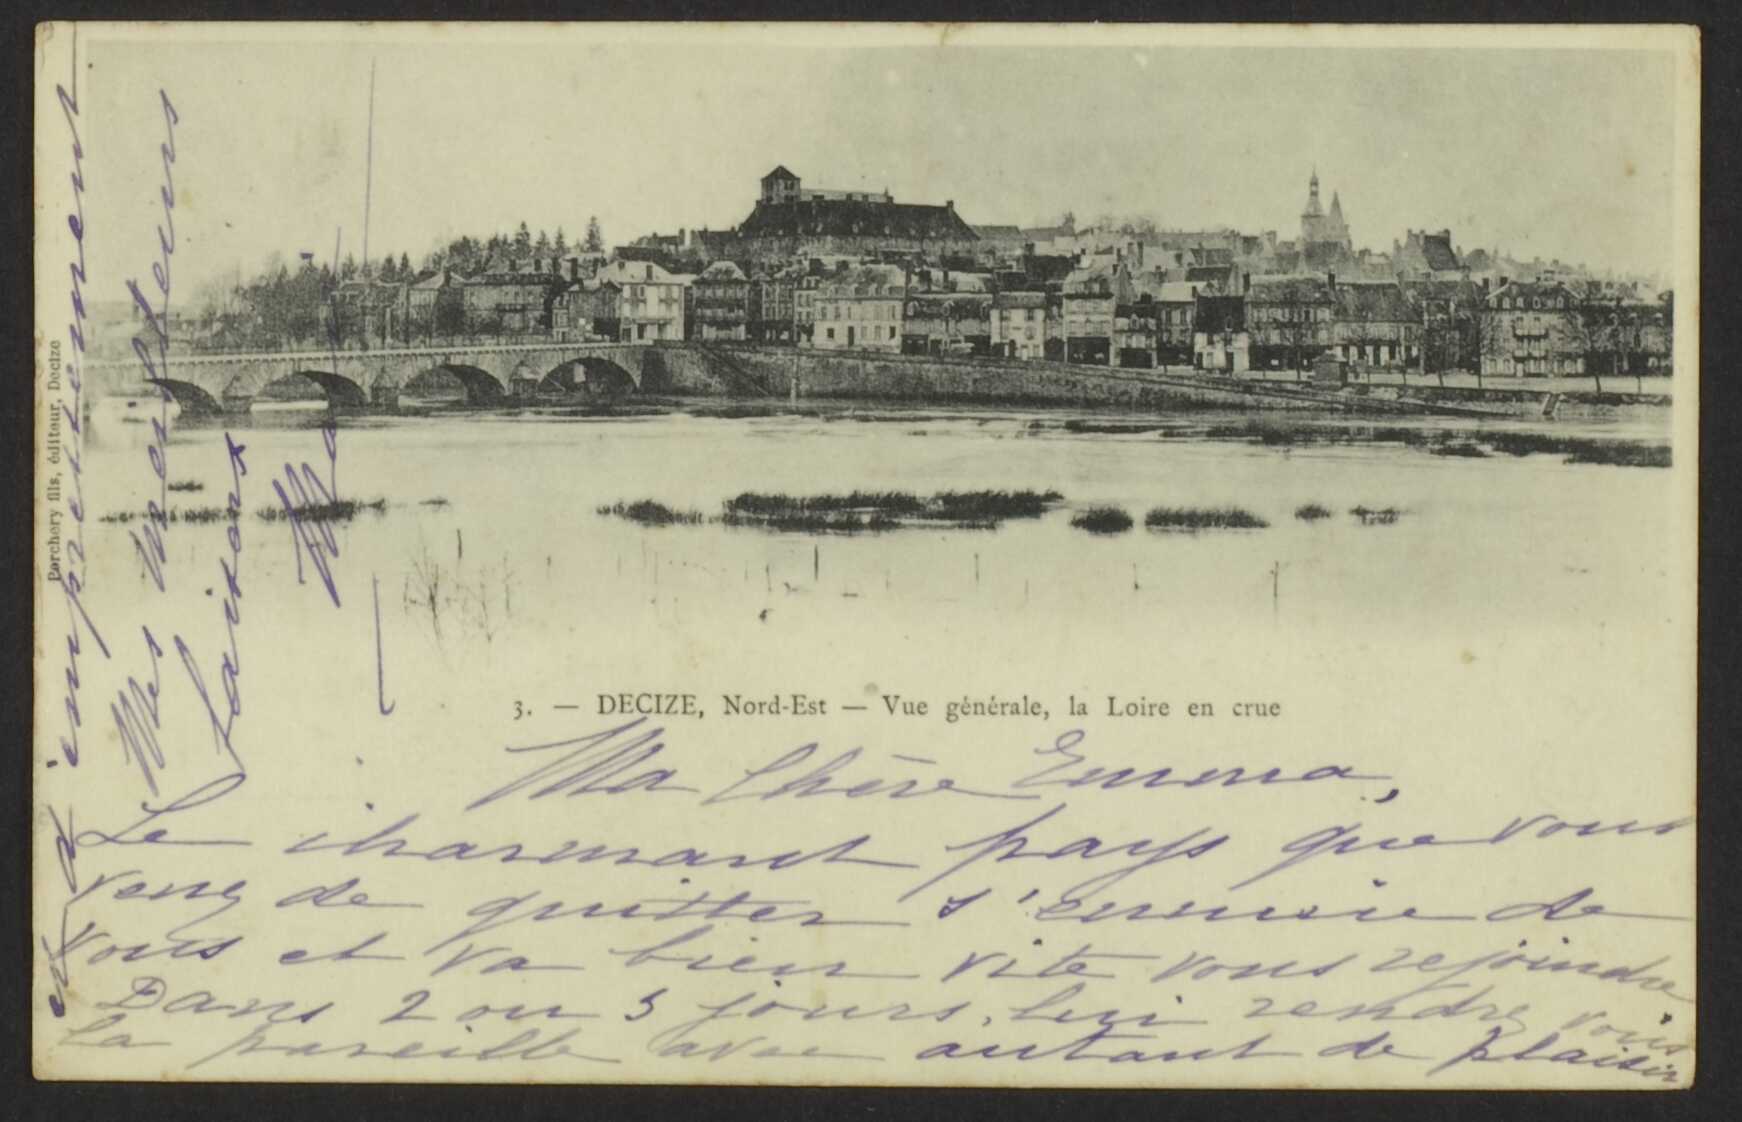 3. — DECIZE, Nord-Est — Vue générale, la Loire en crue
Porchery fils, éditeur, Decize
Ma Chère Emma,
Le charmant pays que vous
venez de quitter s'ennuie de
vous et va bien vite vous rejoindre
Dans 2 ou 3 jours, lui rendrez vous
la pareille avec autant de plaisir
et d'empressement
Mes meilleurs
baisers